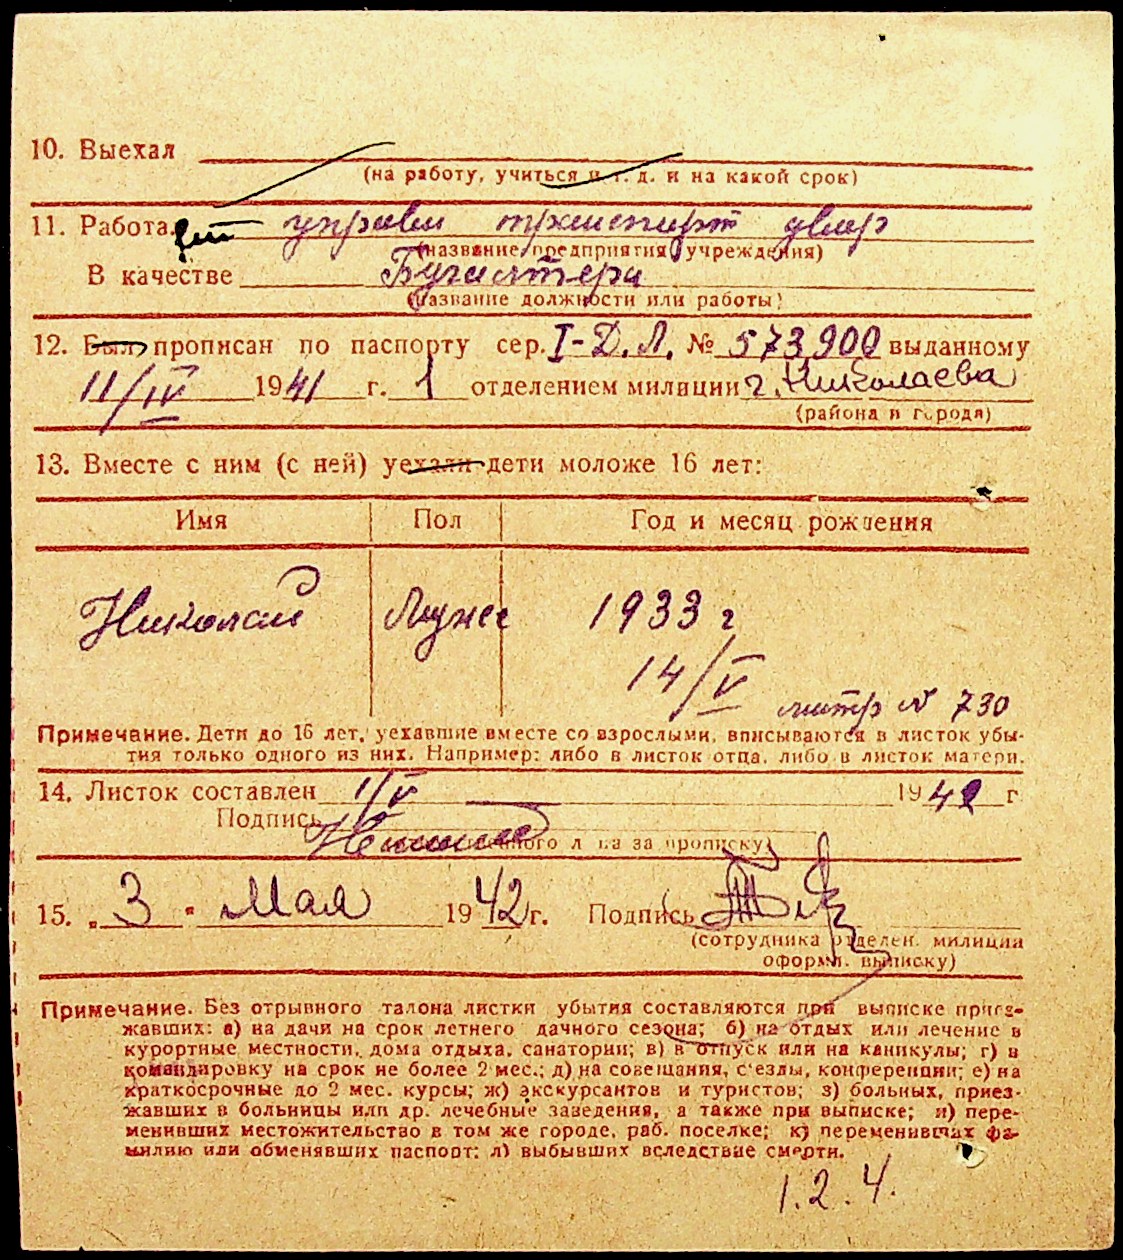 10. Выехал
(на работу, учиться и т. д. и на какой срок)
11. Работа управл транспорт двор
(название предприятия учреждения)
В качестве Бухгалтера
(название должности или работы)
12. Был прописан по паспорту сер. I-Д.Л. № 573900 выданному
11/IV 1941 г. 1 отделением милиции г. Николаева
(района и города)
13. Вместе с ним (с ней) уехали дети моложе 16 лет:
Имя Пол Год и месяц рождения
Николай Муже 1933 г
14/V метр № 730
Примечание. Дети до 16 лет, уехавшие вместе со взрослыми, вписываются в листок убы-
тия только одного из них. Например: либо в листок отца, либо в листок матери.
14. Листок составлен 1/V 1942 г
Подпись
за прописку)
15. „ 3 " Мая 1942 г. Подпись
(сотрудника отделен. милиции
оформ. выписку)
Примечание. Без отрывного талона листки убытия составляются при выписке приез-
жавших: а) на дачи на срок летнего дачного сезона; б) на отдых или лечение в
курортные местности, дома отдыха, санатории; в) в отпуск или на каникулы; г) в
командировку на срок не более 2 мес.; д) на совещания, с'езды, конференции; е) на
краткосрочные до 2 мес. курсы; ж) экскурсантов и туристов; з) больных, приез-
жавших в больницы или др. лечебные заведения, а также при выписке; и) пере-
менивших местожительство в том же городе, раб. поселке; к) переменивших фа-
милию или обменявших паспорт; л) выбывших вследствие смерти.
1.2.4.